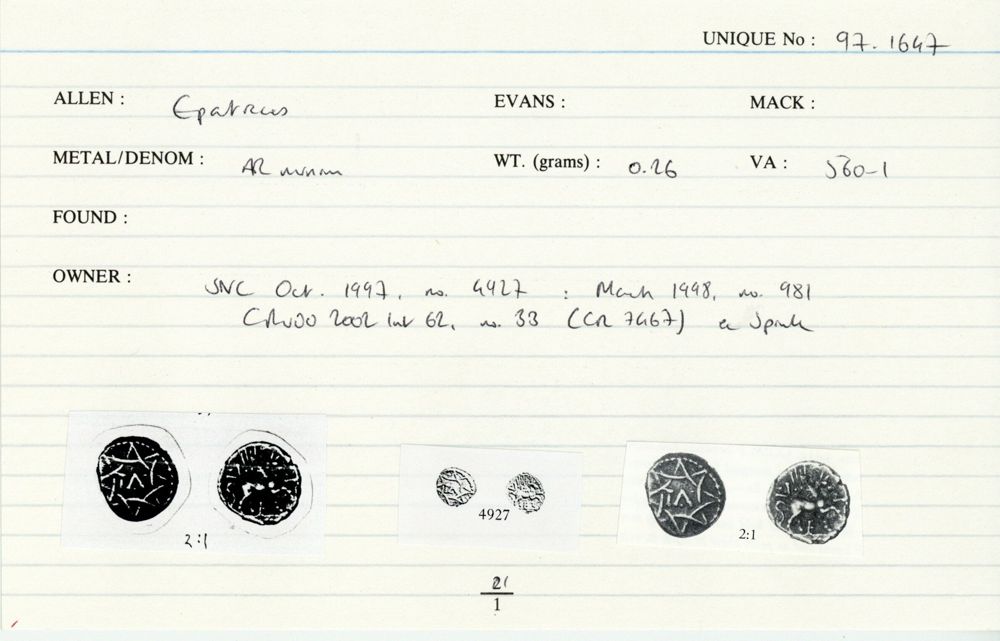 UNIQUE No : 97.1647
ALLEN : Epaticcus EVANS : MACK :
METAL/DENOM : AR minim WT. (grams) : 0.26 VA : 560-1
FOUND :
OWNER : SNC Oct. 1997, no. 4927 : March 1998, no. 981
2002 List 62, no. 33 (CR 7467) ex Spink
2:1
4927
2:1
21
1